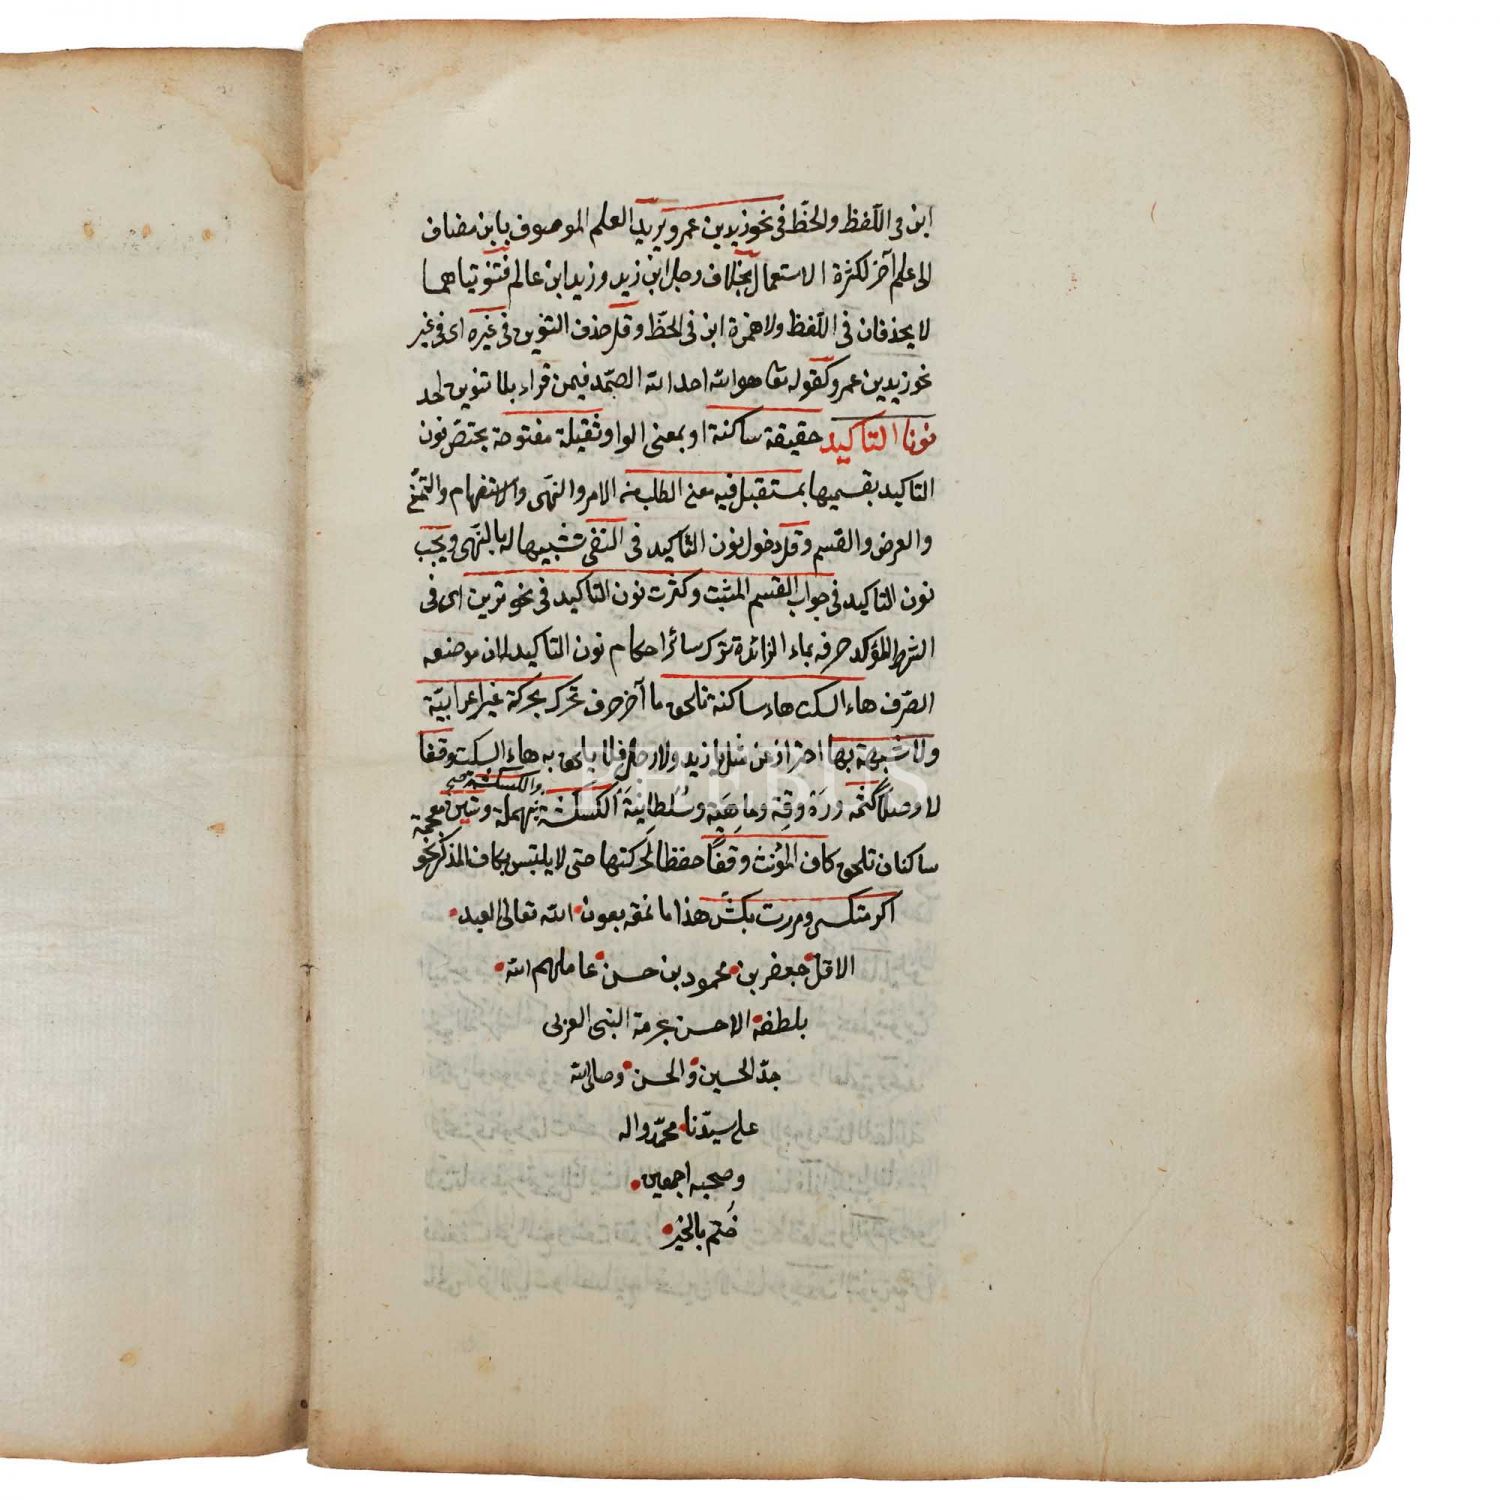 ابن فى اللفظ والخطّ فى نحو زيد بن عمرو يريد العلم الموصوف بابن مضاف
الى علم آخر لكثرة الاستعمال بخلاف رجل ابن زيد وزيد ابن عالم فتنويناهما
لا يحذفان فى اللّفظ ولا همزة ابن فى الخطّ وقل حذف التنوين فى غيره اى فى غير
نحو زيد بن عمرو كقوله تعا هو الله احد الله الصّمد فيمن قراء بلا تنوين احد
نونا التاكيد حقيقة ساكنة او بمعنى الواو ثقيلة مفتوحة يختصّ نون
التاكيد بقسميها بمستقبل فيه معنى الطلب منه الامر والنهى والاستفهام والتمنّى
والعرض والقسم وقل دخول نون التّاكيد فى النفى تشبيها له بالنّهى ويجب
نون التاكيد فى جواب القسم المثبت وكثرت نون التاكيد فى نحو ترين اى فى
الشرط المؤكد حرفه بماء الزائدة ترك سائر احكام نون التاكيد لان موضعه
الصّرف هاء السكت هاء ساكنة تلحق ما آخر حرف تحرك بحركة غير اعرابيّة
ولا شبيهة بها احتراز عن مثل يا زيد ولا رجل فلا يلحق به هاء السكت وقفا
لا وصلًا كثمّه ورَهْ وقِهْ وما هِيَه وسُلطانِيَهْ الكسكسة بمهملة وشين معجمة
والكشكشة صح
ساكنان تلحق كاف المؤنث وقفًا حفظا لحركتها حتى لا يلتبس بكاف المذكّر نحو
اكرمتكس ومررت بكش هذا ما نمقه بعون الله تعالى العبد
الاقل جعفر بن محمود بن حسن عاملهم الله
بلطفه الاحسن بحرمة النبى العربى
جدّ الحسين والحسن وصلى الله
على سيّدنا محمّد واله
وصحبه اجمعين
خُتم بالخير
PHEBUS